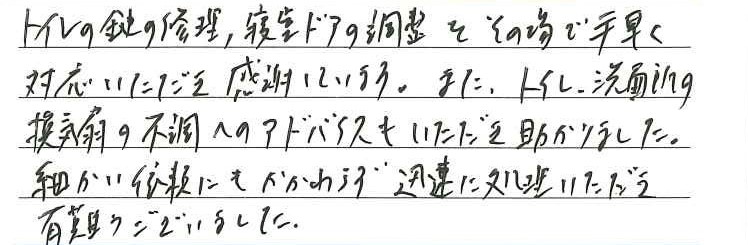 トイレの鍵の修理,寝室ドアの調整をその場で手早く
対応いただき感謝しています。また、トイレ、洗面所の
換気扇の不調へのアドバイスもいただき助かりました。
細かい依頼にもかかわらず迅速に処理いただき
有難うございました。